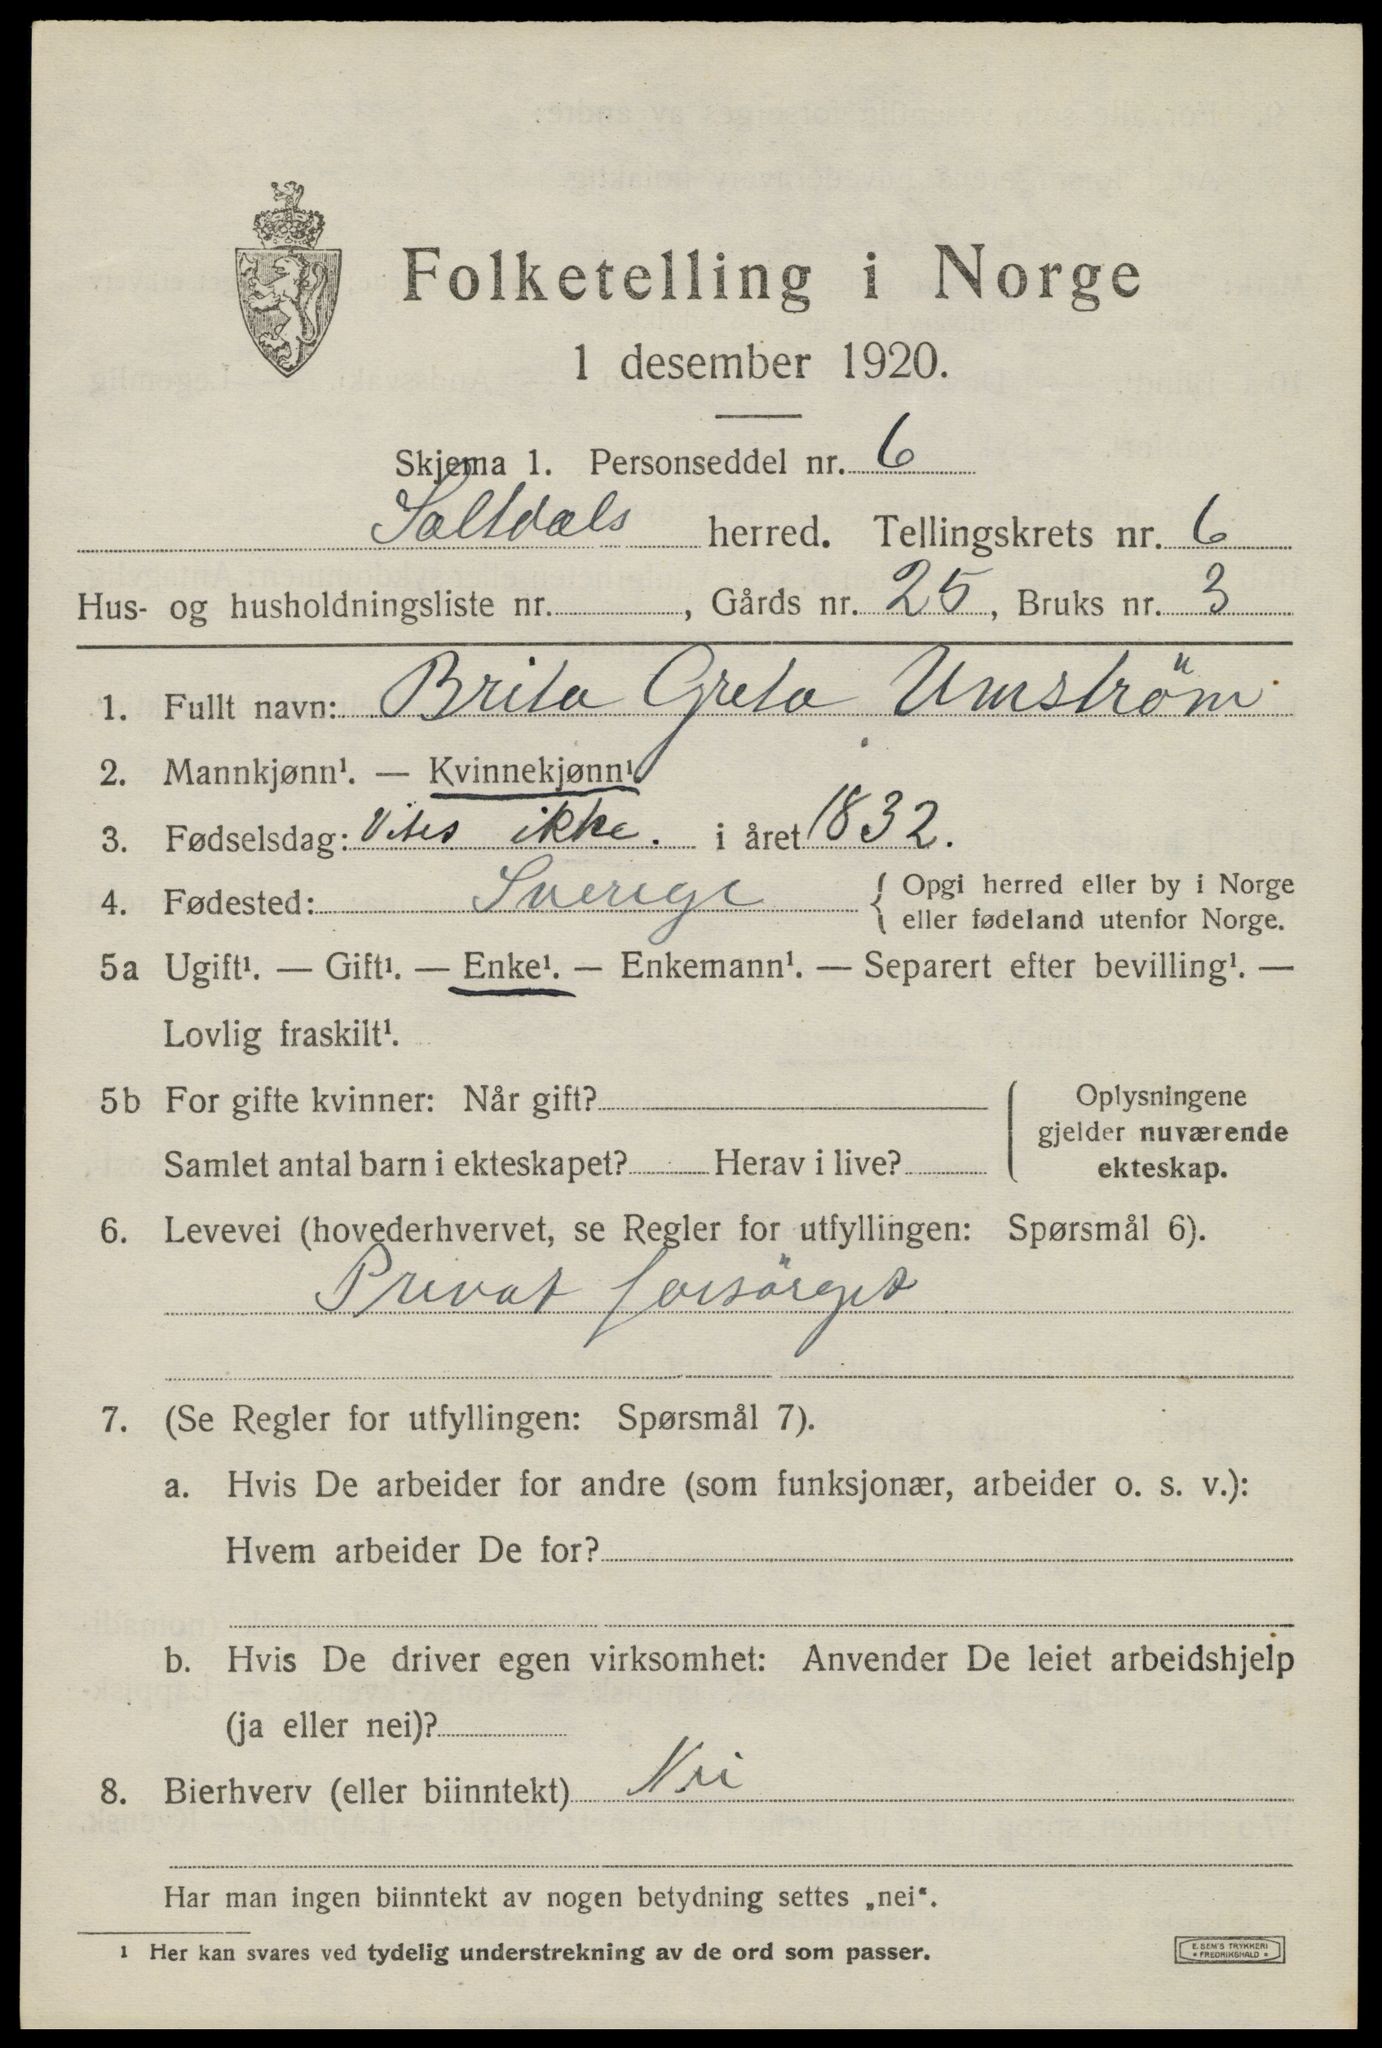 Folketelling i Norge
1 desember 1920.
Skjema 1. Personseddel nr. 6
Saltdals herred. Tellingskrets nr. 6
Hus- og husholdningsliste nr. , Gårds nr. 25, Bruks nr. 3
1. Fullt navn: Brita Greta Umström
2. Mannkjønn¹. — Kvinnekjønn¹.
3. Fødselsdag: Vites ikke. i året 1832.
4. Fødested: Sverige { Opgi herred eller by i Norge
eller fødeland utenfor Norge.
5a Ugift¹. — Gift¹. — Enke¹. — Enkemann¹. — Separert efter bevilling¹. —
Lovlig fraskilt¹.
5b For gifte kvinner: Når gift?
Samlet antal barn i ekteskapet? Herav i live?
Oplysningene
gjelder nuværende
ekteskap.
6. Levevei (hovederhvervet, se Regler for utfyllingen: Spørsmål 6).
Privat forsörget
7. (Se Regler for utfyllingen: Spørsmål 7).
a. Hvis De arbeider for andre (som funksjonær, arbeider o. s. v.):
Hvem arbeider De for?
b. Hvis De driver egen virksomhet: Anvender De leiet arbeidshjelp
(ja eller nei)?
8. Bierhverv (eller biinntekt) Nei
Har man ingen biinntekt av nogen betydning settes „nei“.
1 Her kan svares ved tydelig understrekning av de ord som passer.
E. SEM'S TRYKKERI
* FREDRIKSHALD *